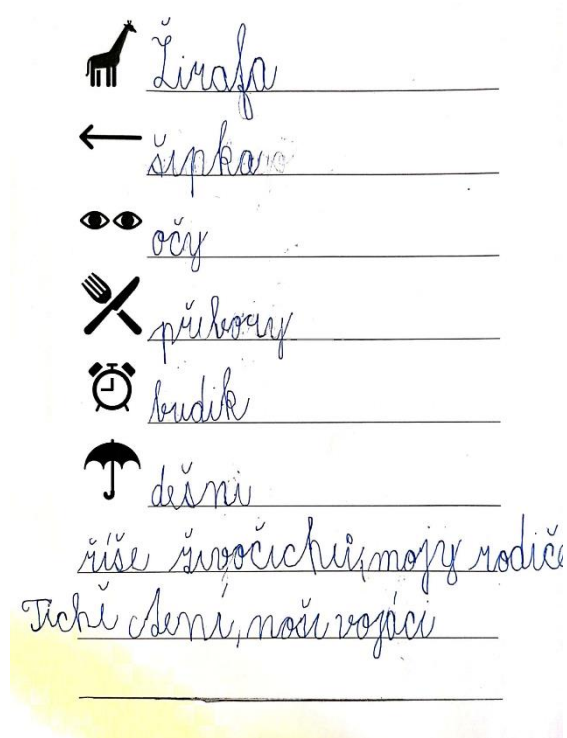 Žirafa
šipka
očy
přibory
budik
dešni
říše živočichů, mojy rodiče
Tiché čtení, noši vojáci